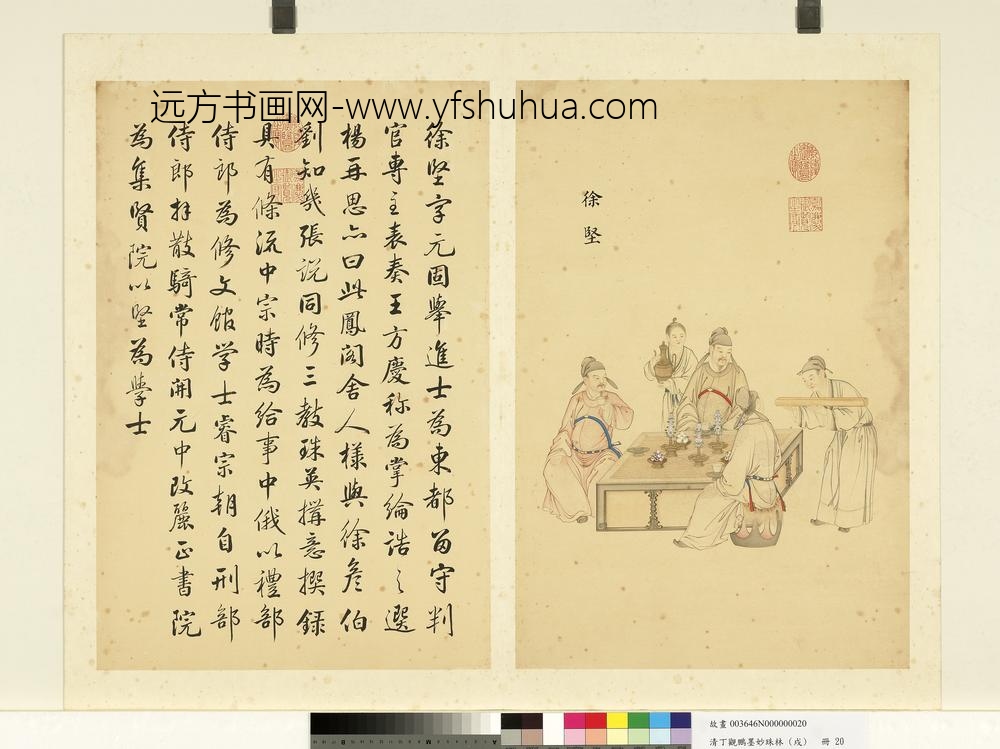 远方书画网-www.yfshuhua.com
徐坚字元固舉進士為東都留守判
官專主表奏王方慶称為掌綸誥之選
楊再思亦曰此鳳阁舍人樣與徐彦伯
劉知幾張説同修三教珠英搆意撰録
具有條流中宗時為给事中俄以禮部
侍郎為修文館学士睿宗朝自刑部
侍郎拜散騎常侍開元中改麗正書院
為集賢院以坚為學士
徐坚
故畫 003646N000000020
清丁觀鵬墨妙珠林（戌） 冊 20